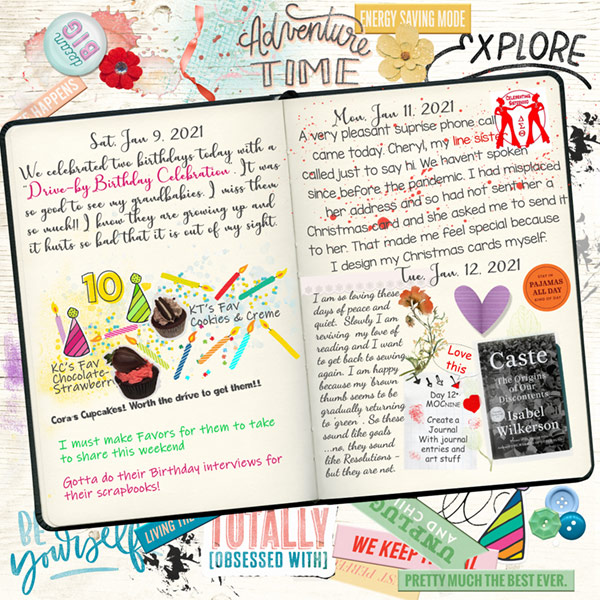 dream
BIG
Adventure
TIME
ENERGY SAVING MODE
EXPLORE
HAPPENS
Sat. Jan 9, 2021
We celebrated two birthdays today with a
"Drive-by Birthday Celebration". It was
so good to see my grandbabies. I miss them
so much!! I know they are growing up and
it hurts so bad that it is out of my sight.
10
KT's Fav
Cookies & Creme
KC's Fav
Chocolate-
Strawberry
Cora's Cupcakes! Worth the drive to get them!!
I must make Favors for them to take
to share this weekend
Gotta do their Birthday interviews for
their scrapbooks!
Mon, Jan 11, 2021
A very pleasant suprise phone call
came today. Cheryl, my line sister
called just to say hi. We haven't spoken
since before the pandemic. I had misplaced
her address and so had not sent her a
Christmas card and she asked me to send it
to her. That made me feel special because
I design my Christmas cards myself.
ΔΣΘ
Tue, Jan. 12, 2021
I am so loving these
days of peace and
quiet. Slowly I am
reviving my love of
reading and I want
to get back to sewing
again. I am happy
because my brown
thumb seems to be
gradually returning
to green . So these
sound like goals
...no, they sound
like Resolutions -
but they are not.
STAY IN
PAJAMAS
ALL DAY
KIND OF DAY
Love
this
Day 12•
MOCnine
Create a
Journal
With journal
entries and
art stuff
Caste
The Origins of
Our
Discontents
Isabel
Wilkerson
BE
yourself
LIVING THE
TOTALLY
[OBSESSED WITH]
UNPLUG
AND CHI
WE KEEP
PRETTY MUCH THE BEST EVER.